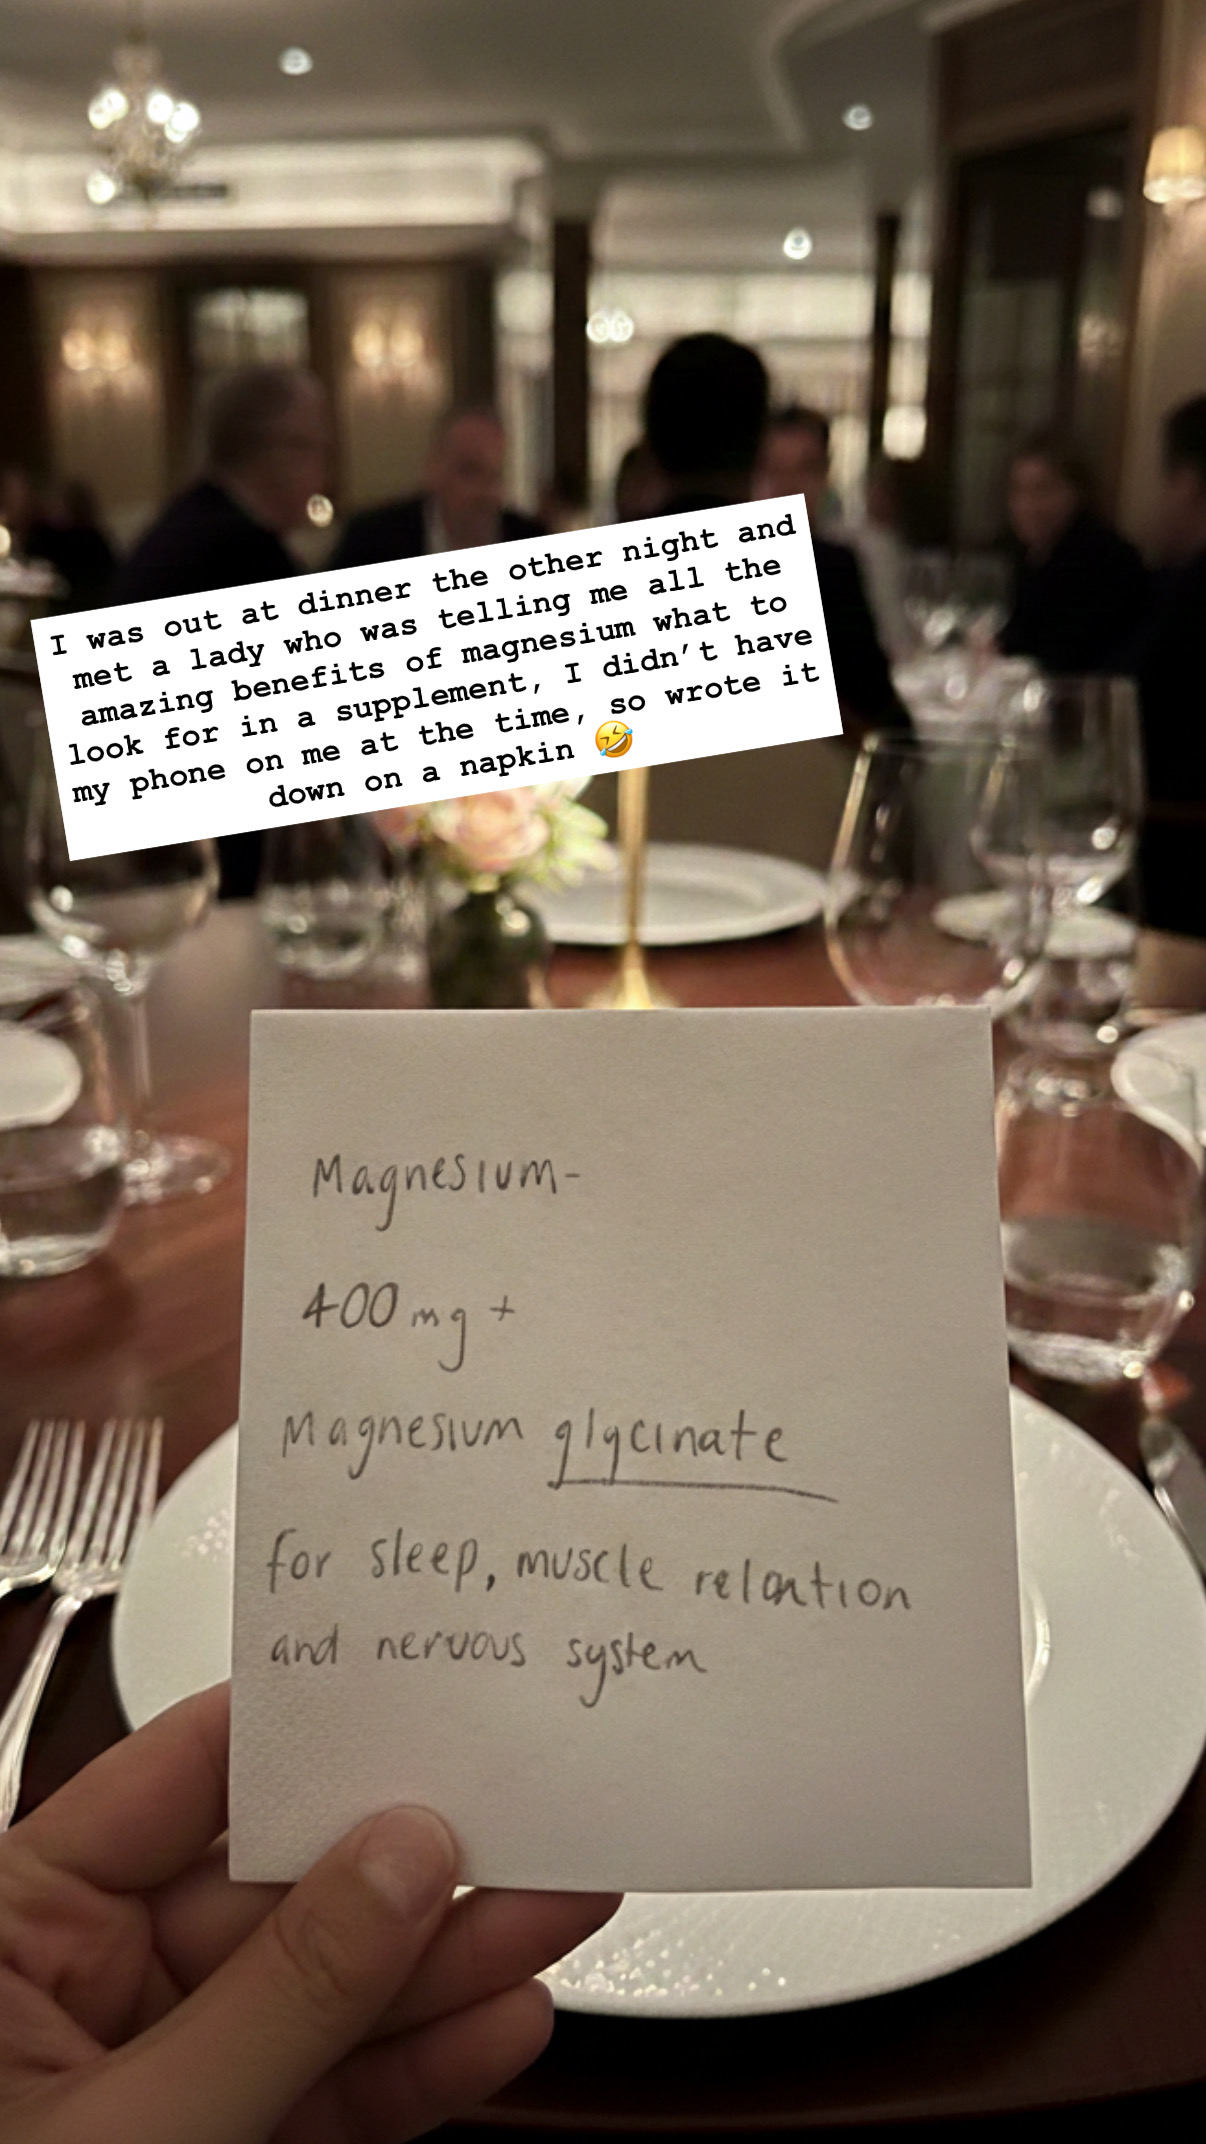 I was out at dinner the other night and
met a lady who was telling me all the
amazing benefits of magnesium what to
look for in a supplement, I didn’t have
my phone on me at the time, so wrote it
down on a napkin 🤣
Magnesium-
400mg +
Magnesium glycinate
for sleep, muscle relantion
and nervous system